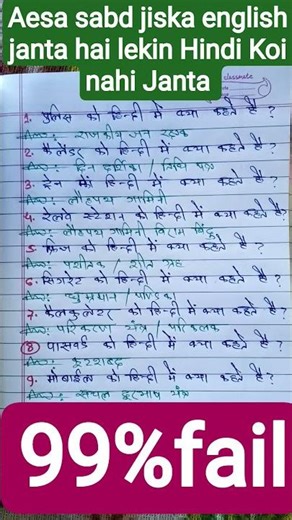 Aesa sabd jiska english
janta hai lekin Hindi Koi
nahi Janta
classmate
1. पुलिस को हिन्दी में क्या कहते हैं ?
राजकीय जन रक्षक
2. कैलेंडर को हिन्दी में क्या कहते हैं ?
दिन दर्शिका / तिथि पत्र
3. ट्रेन को हिन्दी में क्या कहते हैं ?
लौहपथ गामिनी
4. रेलवे स्टेशन को हिन्दी में क्या कहते हैं ?
लौहपथ गामिनी विराम बिंदु
5. फ्रिज को हिन्दी में क्या कहते हैं ?
प्रशीतक / शीत
6. सिगरेट को हिन्दी में क्या कहते हैं ?
धूम्रपान /
7. कैलकुलेटर को हिन्दी में क्या कहते हैं ?
परिकलन यंत्र / परिकलक
8 पासवर्ड को हिन्दी में क्या कहते हैं ?
कूटशब्द
9. मोबाईल को हिन्दी में क्या कहते हैं ?
दूरभाष यंत्र
99%fail